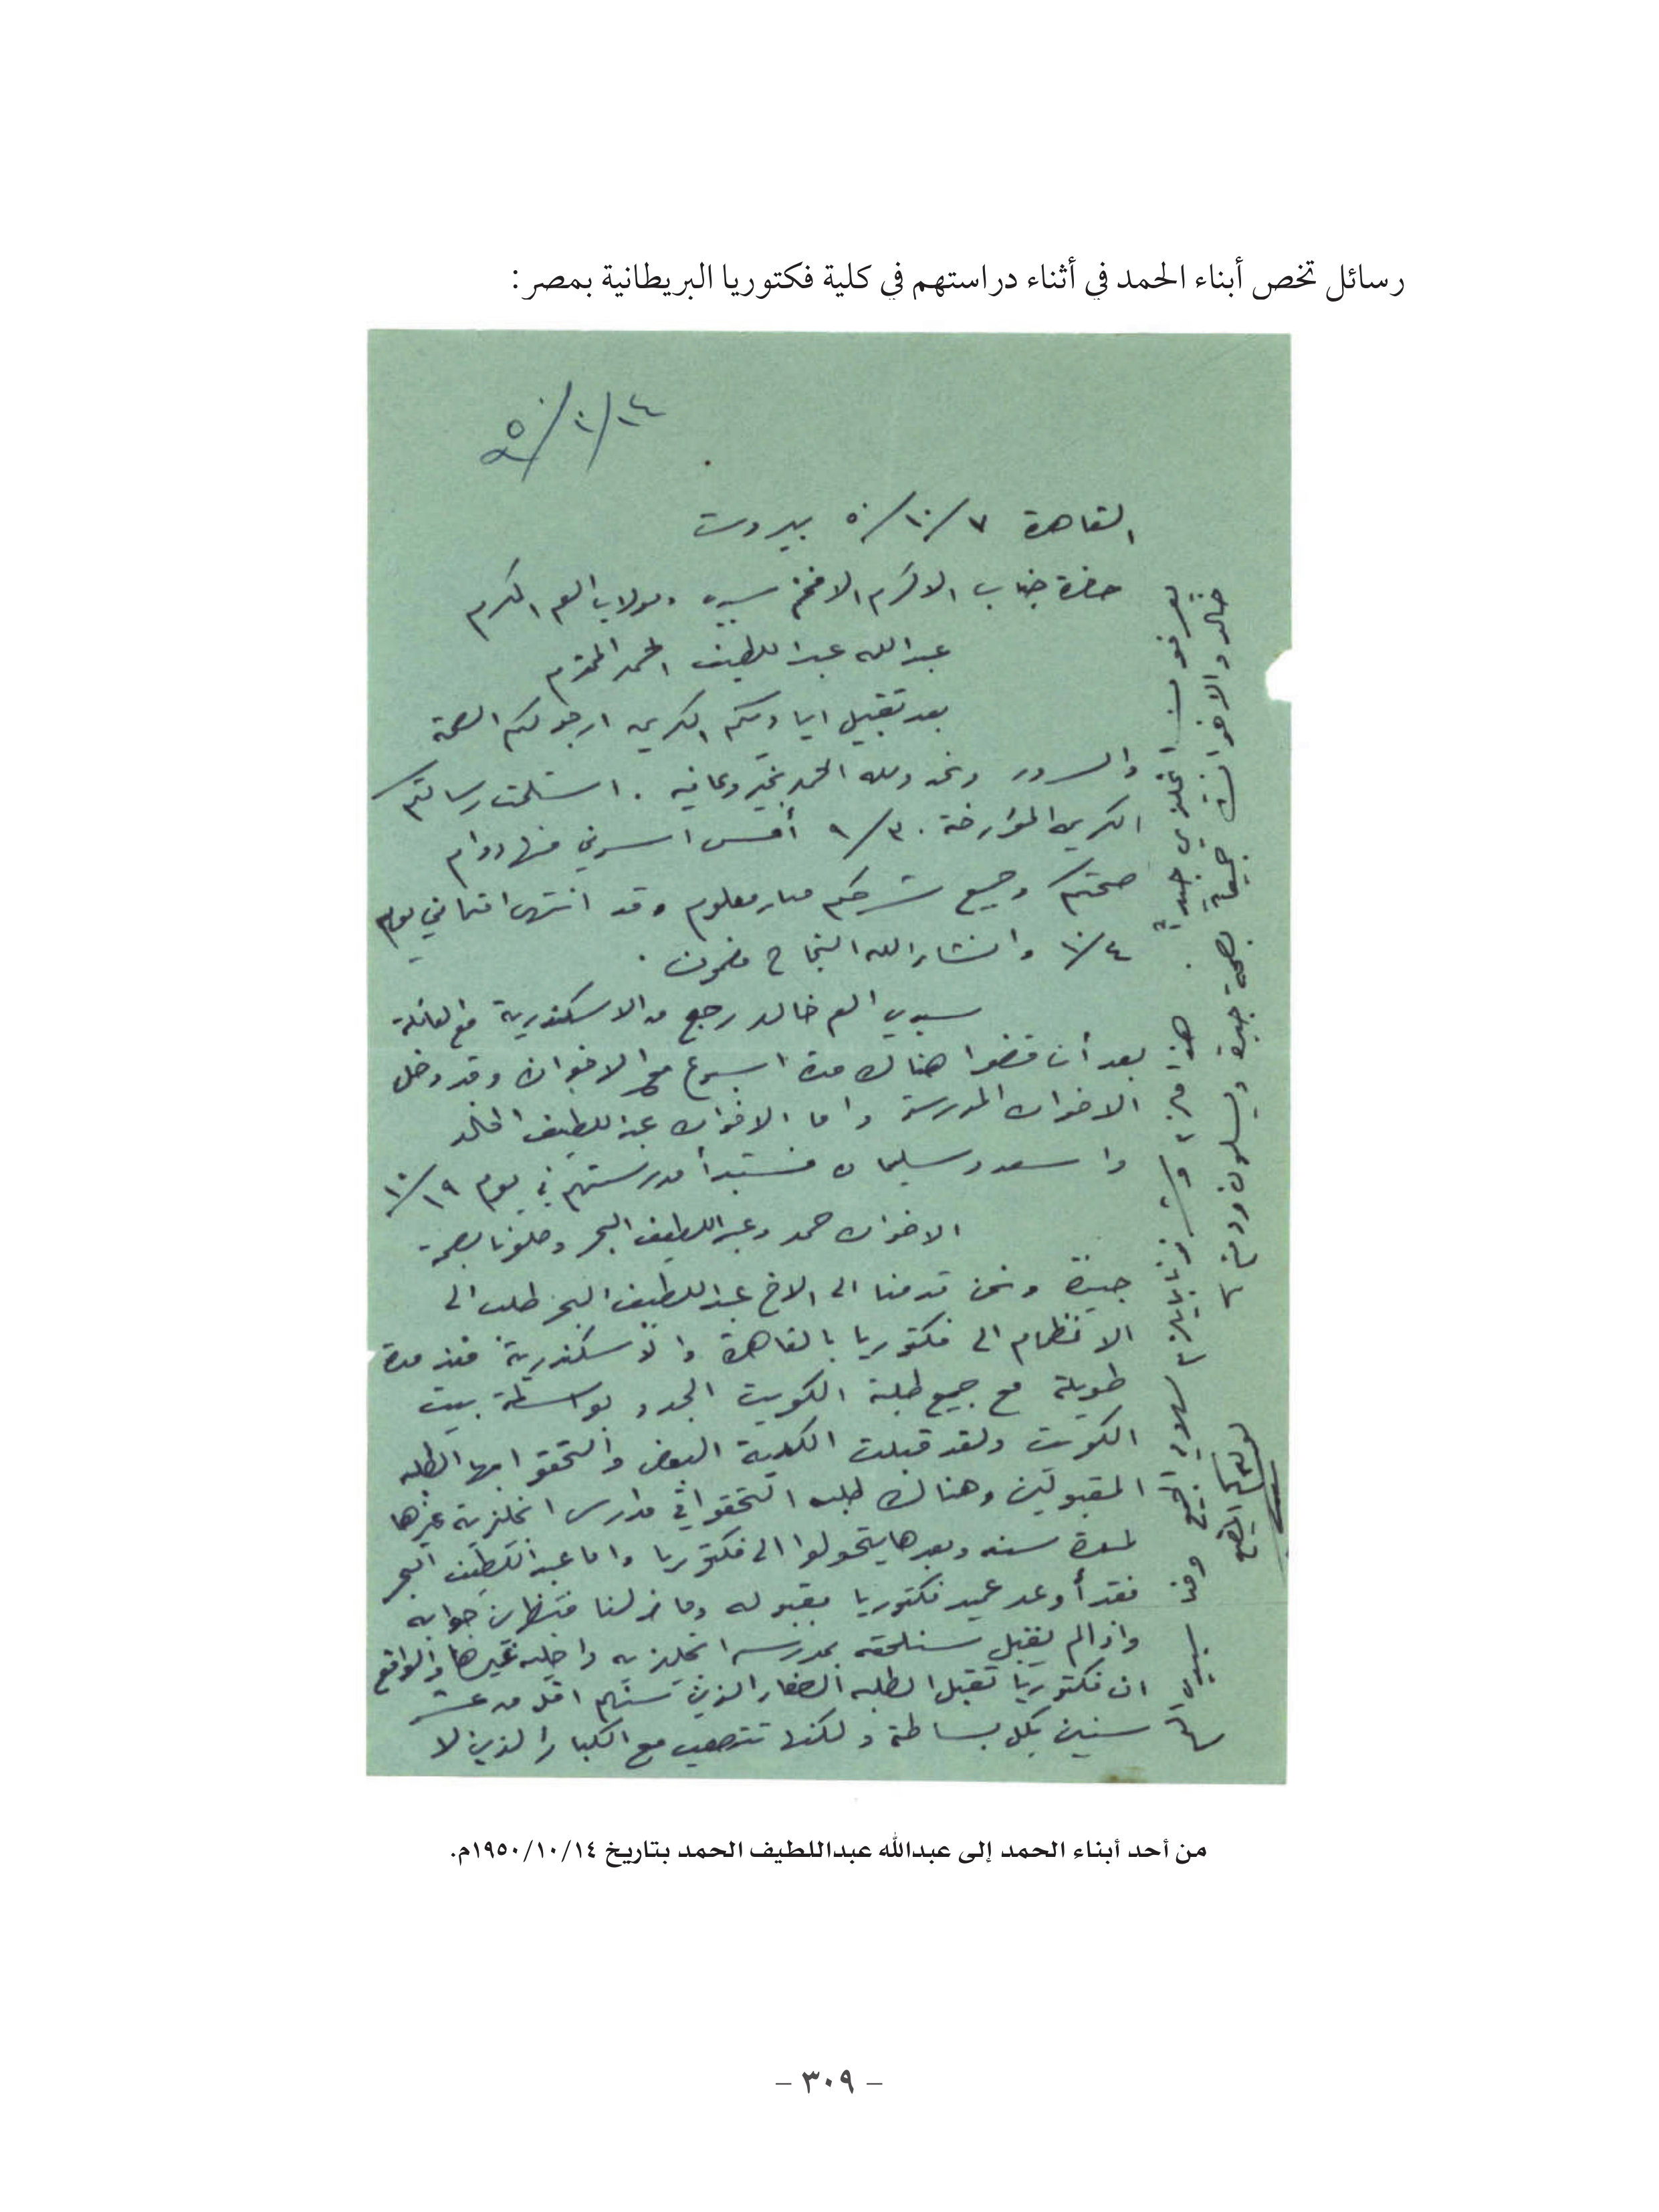 رسائل تخص أبناء الحمد في أثناء دراستهم في كلية فكتوريا البريطانية بمصر:
١٤/١٠/٥٠
القاهرة ٧/١٠/٥٠ بيروت
حضرة جناب الاكرم الافخم سيدي ومولاي العم المكرم
عبدالله عبداللطيف الحمد المحترم
بعد تقبيل اياديكم الكريمه ارجو لكم الصحة
والسرور ونحن ولله الحمد بخير وعافيه . استلمت رسالتكم
الكريمه المؤرخة ٣٠/٩ أمس اسرني منها دوام
صحتكم وجميع شرحكم صار معلوم وقد انتهى امتحاني يوم
١٠/٤ وانشاء الله النجاح مضمون .
سيدي العم خالد رجع من الاسكندرية مع العائلة
بعد أن قضوا هناك مدة اسبوع مع الاخوان وقد دخل
الاخوان المدرسة واما الاخوان عبداللطيف الخالد
واسعد وسليمان فستبدأ مدرستهم في يوم ١٠/١٩
الاخوان حمد وعبداللطيف البحر وصلونا بصحة
جيدة ونحن قدمنا الى الاخ عبداللطيف البحر طلب الى
الانظمام الى فكتوريا بالقاهرة والاسكندرية منذ مدة
طويلة مع جميع طلبة الكويت الجدد بواسطة بيت
الكويت ولقد قبلت الكلية البعض والتحقوا بها الطلبه
المقبولين وهناك طلبه التحقوا في مدارس انجليزية غيرها
لمدة سنه وبعدها يتحولوا الى فكتوريا واما عبداللطيف البحر
فقد أوعد عميد فكتوريا بقبوله وما زلنا منتظرين جوابه
واذا لم يقبل سنلحقه بمدرسه انجليزيه داخليه غيرها والواقع
ان فكتوريا تقبل الطلبه الصغار الذين سنهم اقل من عشر
سنين بكل بساطة ولكنها تتصعب مع الكبار الذين لا
يعرفون انجليزي جيداً . هذا ما لزم سلامي الجميع ومن سيدي العم
خالد والاخوان جميعاً بصحة جيدة ويسلمون ودمتم
ولدكم المطيع
من أحد أبناء الحمد إلى عبدالله عبداللطيف الحمد بتاريخ ١٩٥٠/١٠/١٤م.
– ٣٠٩ –